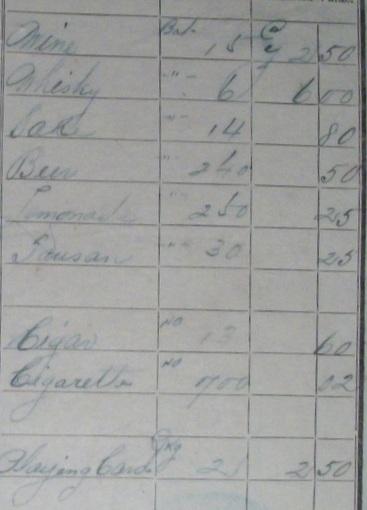 Wine Bot. 15 @ 2 50
Whisky " 6 6 00
Sake " 14 80
Beer " 240 50
Lemonade " 250 25
Tansan " 30 25
Cigar NO 13 60
Cigarette NO 700 02
Playing Cards Pkg 2 50